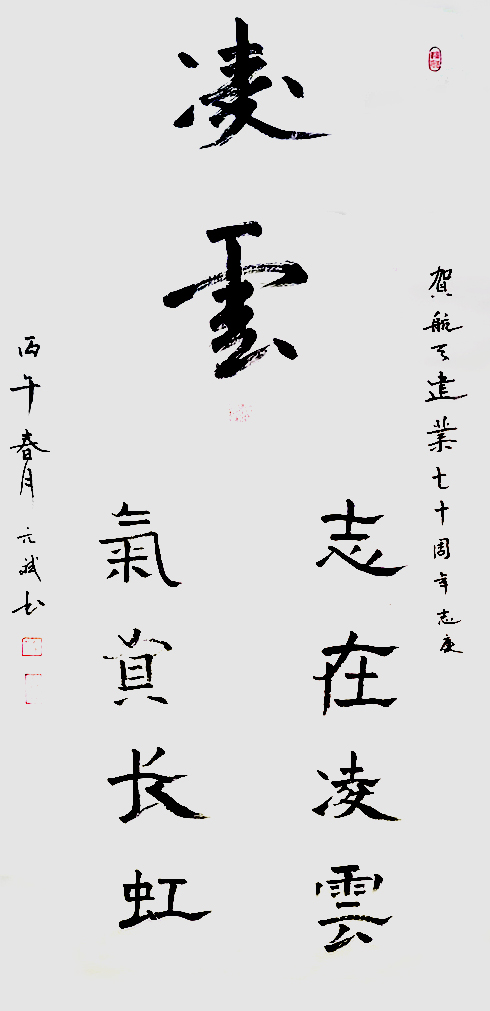 凌雲
賀航天建業七十周年志庆
志在凌雲
氣貫长虹
丙午春月元斌书